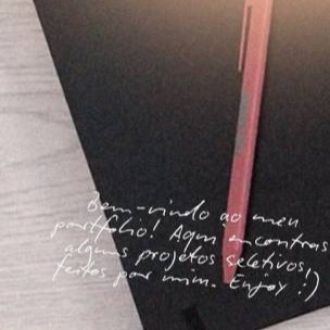 Bem-vindo ao meu
portfolio! Aqui encontras
alguns projetos seletivos,
feitos por mim. Enjoy :)